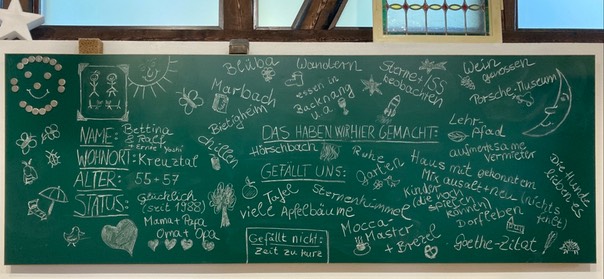 NAME: Bettina
& Ralf
+ Ernie + Yoshi
WOHNORT: Kreuztal
ALTER: 55+57
STATUS: Glücklich
(seit 1988)
Mama + Papa
Oma + Opa
Blüba
Wandern
Sterne/ISS
beobachten
Wein
genossen
Marbach
Essen in
Backnang
u.a
Porsche-Museum
Bietigheim
Chillen
DAS HABEN WIR HIER GEMACHT:
Lehr-
Pfad
Hörschbach
aufmerksame
Vermieter
GEFÄLLT UNS:
Ruhe
Garten
Haus mit gekonntem
Mix aus alt + neu (nichts
fehlt)
Die Hunde
lieben es
Tafel
Sternenhimmel
Kinder
(die vorm
spielen
können)
viele Apfelbäume
Dorfleben
Mocca-
Master
+ Brezel
Goethe-Zitat
Gefällt nicht:
Zeit zu kurz